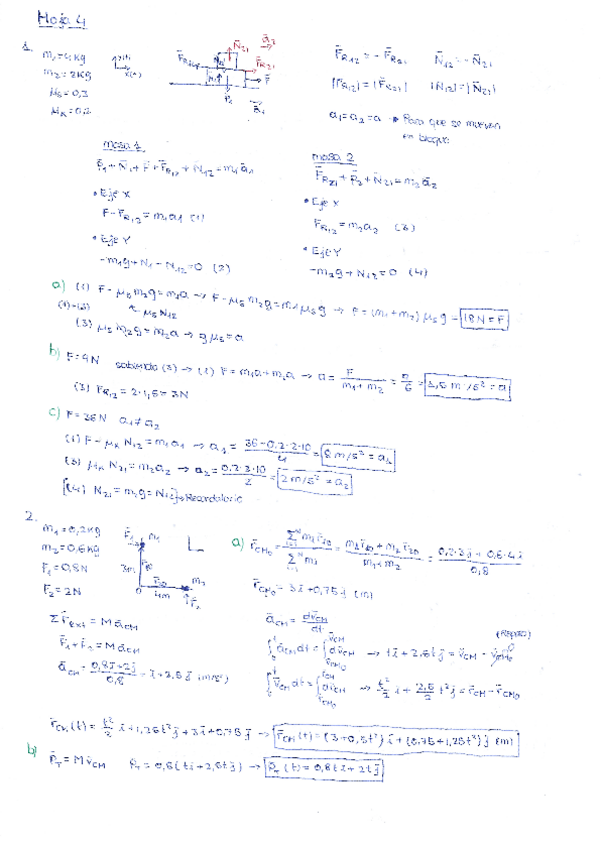 Hoja 4
1.
m₁=4kg
m₂=2kg
μs=0,3
μk=0,2
F̄R12 = - F̄R21   N̄12 = - N̄21
|F̄R12| = |F̄R21|   |N̄12| = |N̄21|
a₁=a₂=a → Para que se muevan
en bloque
masa 1
P̄₁ + N̄₁ + F̄ + F̄R12 + N̄12 = m₁ā₁
• Eje X
F - FR12 = m₁a₁ (1)
• Eje Y
-m₁g + N₁ - N12 = 0 (2)
masa 2
F̄R21 + P̄₂ + N̄21 = m₂ā₂
• Eje X
FR12 = m₂a₂ (3)
• Eje Y
-m₂g + N12 = 0 (4)
a) (1) F - μs m₂g = m₁a → F - μs m₂g = m₁μs g → F = (m₁+m₂) μs g = 18N = F
μs N12
(3) μs m₂g = m₂a → g μs = a
b) F=9N sabiendo (3) → (1) F = m₁a + m₂a → a = F / (m₁+m₂) = 9/6 = 1,5 m/s² = a
(3) FR12 = 2·1,5 = 3N
c) F=36N a₁≠a₂
(1) F - μk N12 = m₁a₁ → a₁ = (36-0.2·2·10)/4 = 8 m/s² = a₁
(3) μk N21 = m₂a₂ → a₂ = 0.2·2·10/2 = 2 m/s² = a₂
[(4) N21 = m₂g = N12] → Recordatorio
2.
m₁=0,2kg
m₂=0,6kg
F₁=0,8N
F₂=2N
F̄₁ m₁
3m
0 4m m₂
F̄₂
a) r̄CM₀ = Σ mᵢ r̄ᵢ₀ / Σ mᵢ = (m₁ r̄₁₀ + m₂ r̄₂₀)/(m₁+m₂) = (0,2·3j̄ + 0,6·4ī)/0,8
r̄CM₀ = 3ī + 0,75j̄ (m)
Σ F̄ext = M āCM
F̄₁ + F̄₂ = M āCM
āCM = (0,8ī + 2j̄)/0,8 = ī + 2,5j̄ (m/s²)
āCM = dv̄CM/dt
(Reposo)
∫ āCM dt = ∫ dv̄CM → tī + 2.5tj̄ = v̄CM - v̄CM₀
∫ v̄CM dt = ∫ dr̄CM → t²/2 ī + 2,5/2 t² j̄ = r̄CM - r̄CM₀
r̄CM(t) = t²/2 ī + 1,25t² j̄ + 3ī + 0,75j̄ → r̄CM(t) = (3+0,5t²) ī + (0,75+1,25t²) j̄ (m)
b) P̄T = M v̄CM   P̄T = 0,8 (tī + 2,5tj̄) → P̄T(t) = 0,8tī + 2tj̄